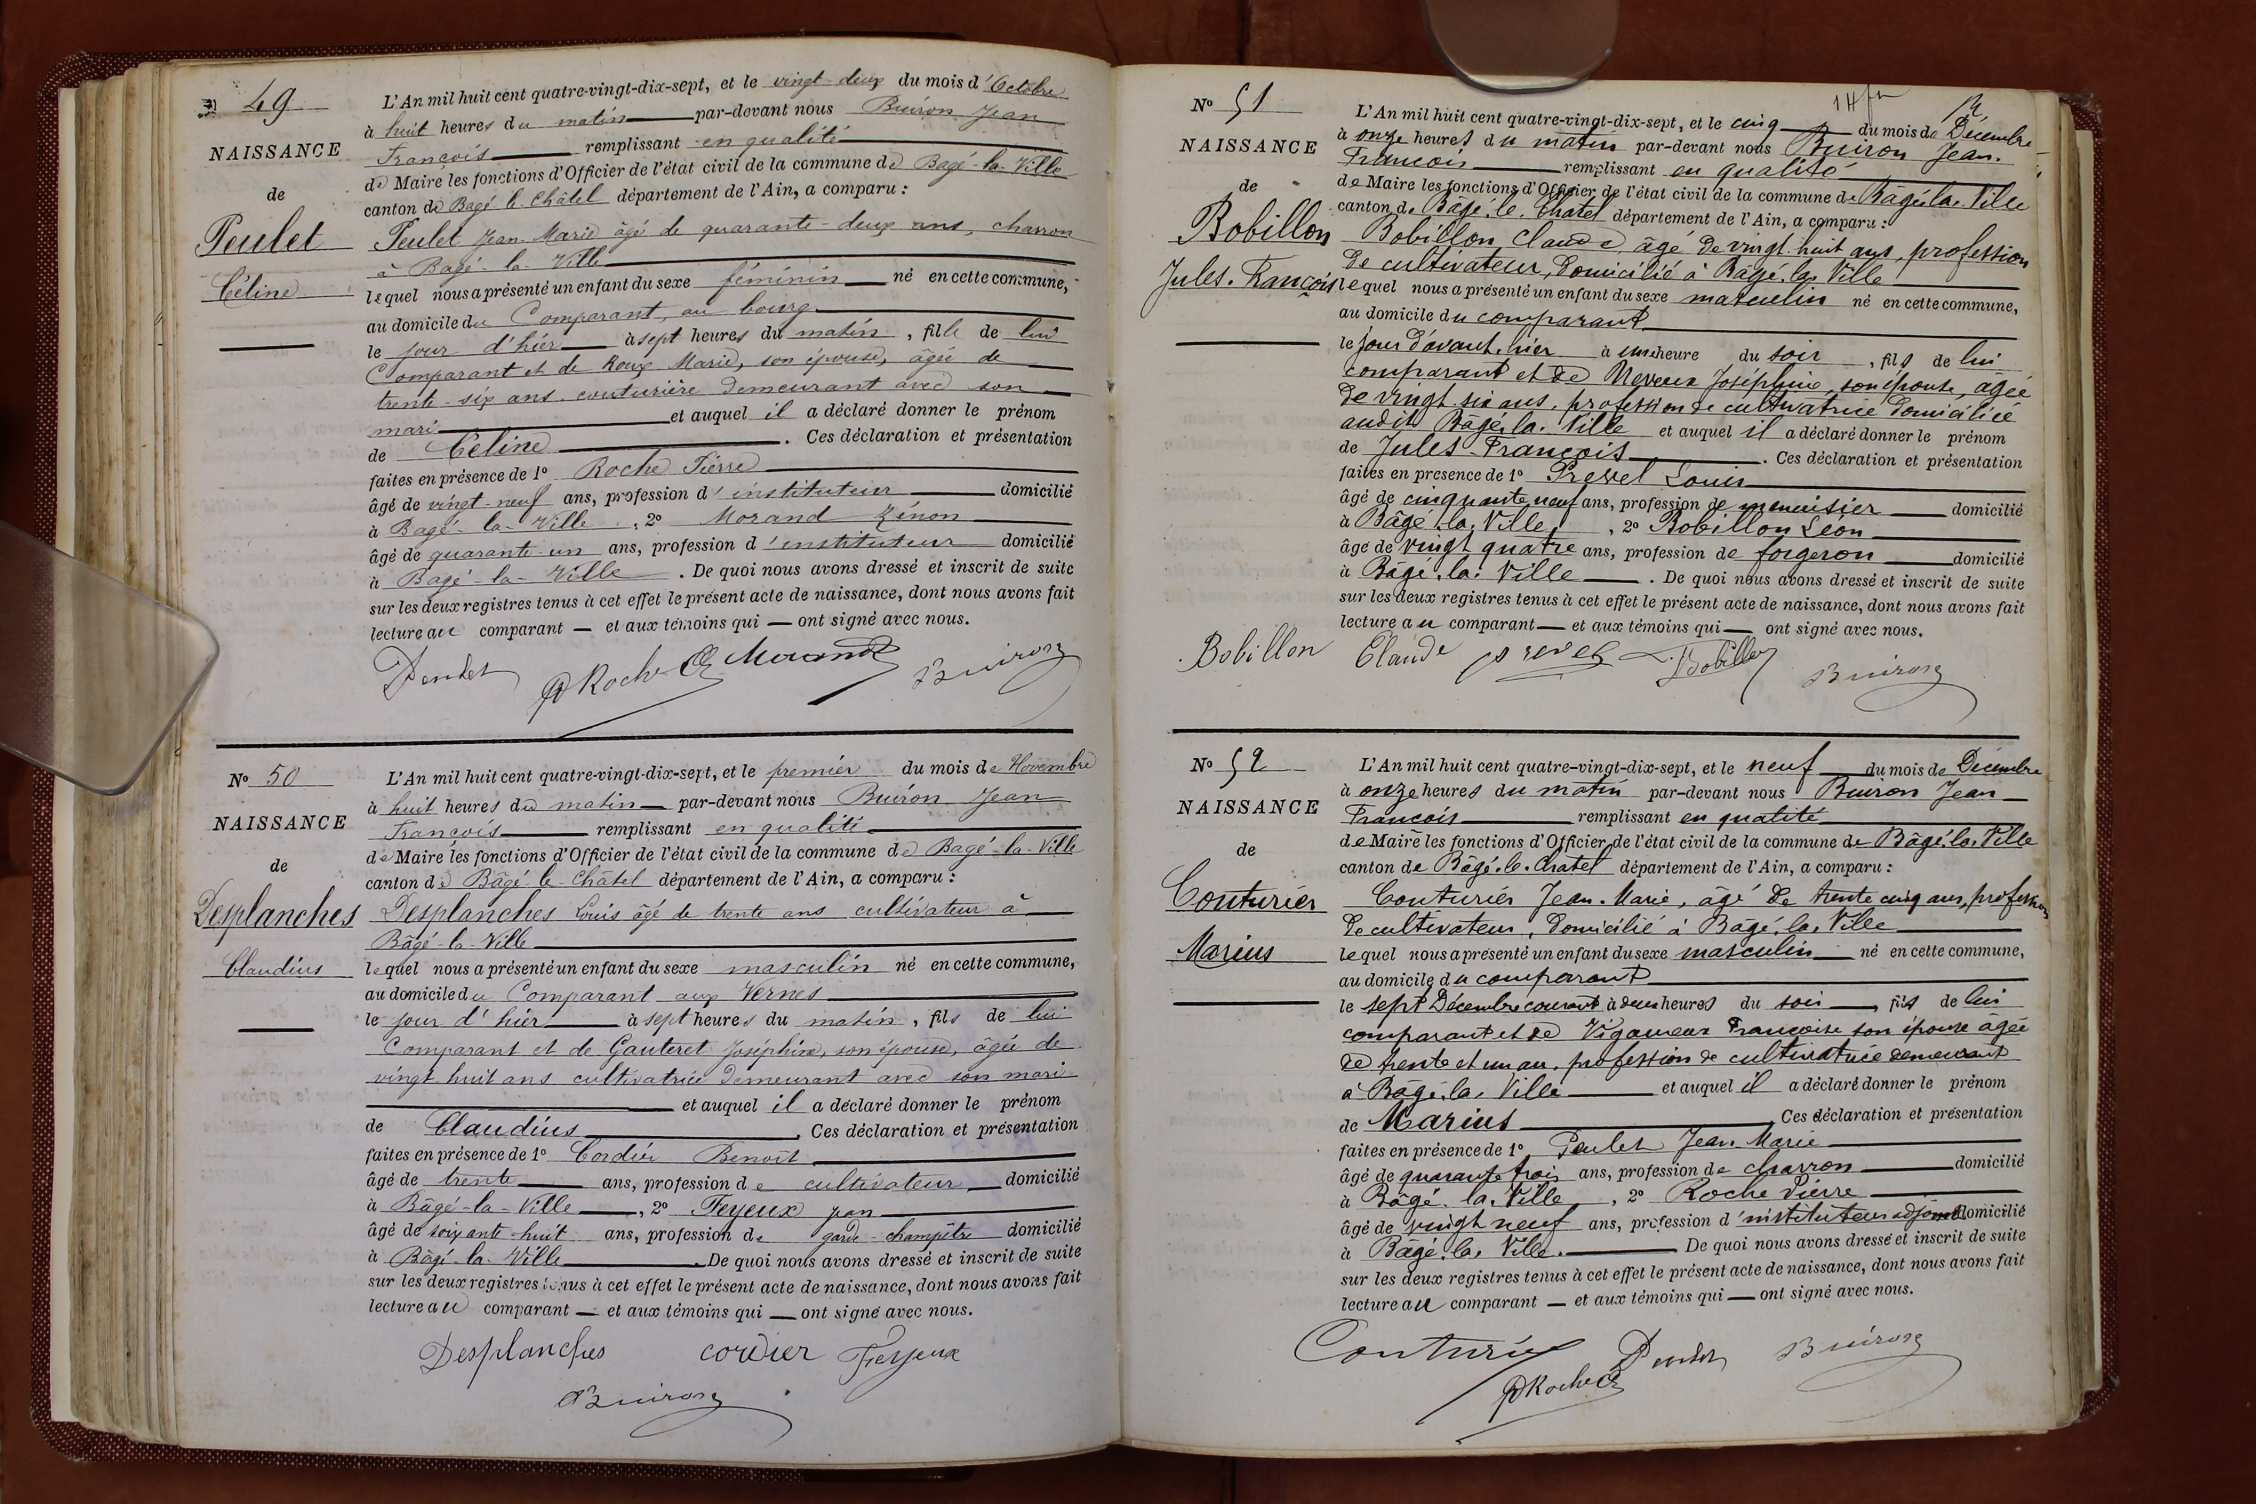 49
NAISSANCE
de
Peulet
Céline
L'An mil huit cent quatre-vingt-dix-sept, et le vingt-deux du mois d'Octobre
à huit heures du matin par-devant nous Buiron Jean
François remplissant en qualité
de Maire les fonctions d'Officier de l'état civil de la commune de Bagé-la-Ville
canton de Bagé-le-Châtel département de l'Ain, a comparu :
Peulet Jean-Marie âgé de quarante-deux ans, charron
à Bagé-la-Ville
lequel nous a présenté un enfant du sexe féminin né en cette commune,
au domicile du Comparant, au bourg
le jour d'hier à sept heures du matin, fille de lui
Comparant et de Roux Marie, son épouse, âgée de
trente-six ans couturière demeurant avec son
mari et auquel il a déclaré donner le prénom
de Céline. Ces déclaration et présentation
faites en présence de 1° Roche Pierre
âgé de vingt-neuf ans, profession d'instituteur domicilié
à Bagé-la-Ville, 2° Morand Zénon
âgé de quarante-un ans, profession d'instituteur domicilié
à Bagé-la-Ville. De quoi nous avons dressé et inscrit de suite
sur les deux registres tenus à cet effet le présent acte de naissance, dont nous avons fait
lecture au comparant — et aux témoins qui — ont signé avec nous.
Peulet PRoche Morand Buiron
N° 50
NAISSANCE
de
Desplanches
Claudius
L'An mil huit cent quatre-vingt-dix-sept, et le premier du mois de Novembre
à huit heures du matin par-devant nous Buiron Jean
François remplissant en qualité
de Maire les fonctions d'Officier de l'état civil de la commune de Bagé-la-Ville
canton de Bâgé-le-Châtel département de l'Ain, a comparu :
Desplanches Louis âgé de trente ans cultivateur à
Bâgé-la-Ville
lequel nous a présenté un enfant du sexe masculin né en cette commune,
au domicile du Comparant aux Vernes
le jour d'hier à sept heures du matin, fils de lui
Comparant et de Gauteret Joséphine, son épouse, âgée de
vingt huit ans cultivatrice demeurant avec son mari
et auquel il a déclaré donner le prénom
de Claudius. Ces déclaration et présentation
faites en présence de 1° Cordier Benoît
âgé de trente ans, profession de cultivateur domicilié
à Bâgé-la-Ville, 2° Feyeux
âgé de soixante-huit ans, profession de garde-champêtre domicilié
à Bâgé-la-Ville. De quoi nous avons dressé et inscrit de suite
sur les deux registres tenus à cet effet le présent acte de naissance, dont nous avons fait
lecture au comparant — et aux témoins qui — ont signé avec nous.
Desplanches cordier Feyeux
Buiron
N° 51
NAISSANCE
de
Bobillon
Jules-François
L'An mil huit cent quatre-vingt-dix-sept, et le cinq du mois de Décembre
à onze heures du matin par-devant nous Buiron Jean-
François remplissant en qualité
de Maire les fonctions d'Officier de l'état civil de la commune de Bâgé-la-Ville
canton de Bâgé-le-Chatel département de l'Ain, a comparu :
Bobillon Claude âgé de vingt-huit ans, profession
de cultivateur, domicilié à Bâgé-la-Ville
lequel nous a présenté un enfant du sexe masculin né en cette commune,
au domicile du comparant
le jour d'avant-hier à une heure du soir, fils de lui
comparant et de Neveux Joséphine, son épouse, âgée
de vingt-six ans, profession de cultivatrice domiciliée
audit Bâgé-la-Ville et auquel il a déclaré donner le prénom
de Jules-François. Ces déclaration et présentation
faites en présence de 1° Prevel Louis
âgé de cinquante neuf ans, profession de menuisier domicilié
à Bâgé-la-Ville, 2° Bobillon Léon
âgé de vingt quatre ans, profession de forgeron domicilié
à Bâgé-la-Ville. De quoi nous avons dressé et inscrit de suite
sur les deux registres tenus à cet effet le présent acte de naissance, dont nous avons fait
lecture au comparant — et aux témoins qui — ont signé avec nous.
Bobillon Claude prevel Bobillon Buiron
N° 52
NAISSANCE
de
Couturier
Marius
L'An mil huit cent quatre-vingt-dix-sept, et le neuf du mois de Décembre
à onze heures du matin par-devant nous Buiron Jean
François remplissant en qualité
de Maire les fonctions d'Officier de l'état civil de la commune de Bâgé-la-Ville
canton de Bâgé-le-Chatel département de l'Ain, a comparu :
Couturier Jean-Marie, âgé de trente cinq ans, profession
de cultivateur, domicilié à Bâgé-la-Ville
lequel nous a présenté un enfant du sexe masculin né en cette commune,
au domicile du comparant
le sept Décembre courant à deux heures du soir, fils de lui
comparant et de Vigoureux Françoise son épouse âgée
de trente et un an, profession de cultivatrice demeurant
à Bâgé-la-Ville et auquel il a déclaré donner le prénom
de Marius Ces déclaration et présentation
faites en présence de 1° Peulet Jean-Marie
âgé de quarante trois ans, profession de charron domicilié
à Bâgé-la-Ville, 2° Roche Pierre
âgé de vingt neuf ans, profession d'instituteur adjoint domicilié
à Bâgé-la-Ville. De quoi nous avons dressé et inscrit de suite
sur les deux registres tenus à cet effet le présent acte de naissance, dont nous avons fait
lecture au comparant — et aux témoins qui — ont signé avec nous.
Couturier Peulet Buiron
PRoche